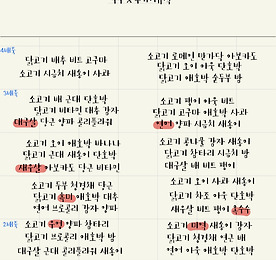 4배죽
닭고기 배추 비트 고구마
소고기 시금치 새송이 사과
소고기 로메인 만가닥 아보카도
닭고기 오이 아욱 단호박
닭고기 애호박 순두부 밤
3배죽
소고기 배 근대 단호박
닭고기 비타민 대추 감자
대구살 당근 양파 콜리플라워
소고기 오이 애호박 바나나
닭고기 근대 새송이 단호박
새우살 아보카도 당근 비타민
소고기 두부 청경채 당근
닭고기 흑미 애호박 대추
연어 브로콜리 감자 양파
소고기 팽이 아욱 비트
닭고기 고구마 애호박 사과
연어 양파 시금치 새송이
소고기 콩나물 감자 새송이
닭고기 양파 시금치 밤
대구살 배 비트 팽이
소고기 오이 사과 새송이
닭고기 차조 아욱 단호박
새우살 비트 팽이 옥수수
2배죽
소고기 수수 양파 양파
닭고기 브로콜리 애호박 밤
대구살 근대 콜리플라워 새송이
소고기 미역 새송이 감자
닭고기 청경채 연근 배
연어 아욱 애호박 단호박